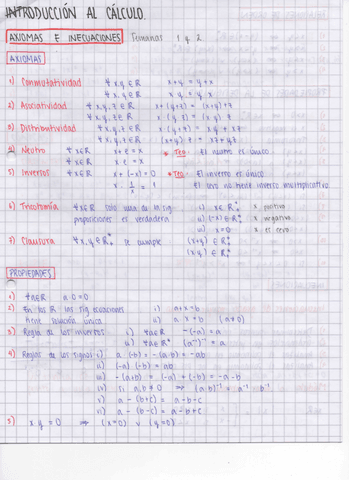 INTRODUCCIÓN AL CÁLCULO.
AXIOMAS E INECUACIONES Semanas 1 y 2
AXIOMAS
1) Conmutatividad ∀x,y∈ℝ x+y = y+x
∀x,y∈ℝ x·y = y·x
2) Asociatividad ∀x,y,z∈ℝ x+(y+z) = (x+y)+z
∀x,y,z∈ℝ x·(y·z) = (x·y)·z
3) Distributividad ∀x,y,z∈ℝ x·(y+z) = xy + xz
∀x,y,z∈ℝ (x+y)·z = xz+yz
4) Neutro ∀x∈ℝ x+e = x * Teo El neutro es único
∀x∈ℝ x·e = x
5) Inversos ∀x∈ℝ x+(-x) = 0 * Teo El inverso es único
x · 1/x = 1 El cero no tiene inverso multiplicativo
6) Tricotomía ∀x∈ℝ solo una de las sig. i) x∈ℝ⁺ x positivo
proposiciones es verdadera ii) (-x)∈ℝ⁺ x negativo
iii) x=0 x es cero
7) Clausura ∀x,y∈ℝ⁺ se cumple: (x+y)∈ℝ⁺
(x·y)∈ℝ⁺
PROPIEDADES
1) ∀a∈ℝ a·0=0
2) En los ℝ las sig ecuaciones i) a+x=b
tiene solución única ii) a·x=b (a≠0)
3) Regla de los inversos i) ∀a∈ℝ -(-a) = a
ii) ∀a∈ℝ* (a⁻¹)⁻¹ = a
4) Reglas de los signos i) a·(-b) = -(a·b) = -ab
ii) (-a)·(-b) = ab
iii) -(a+b) = (-a)+(-b) = -a-b
iv) Si a,b≠0 ⇒ (a·b)⁻¹ = a⁻¹·b⁻¹
v) a-(b+c) = a-b-c
vi) a-(b-c) = a-b+c
5) x·y = 0 ⇒ (x=0) ∨ (y=0)